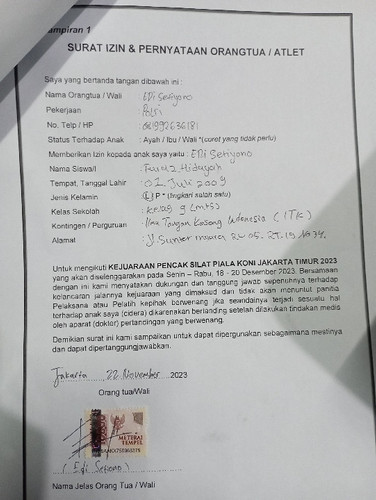 Lampiran 1
SURAT IZIN & PERNYATAAN ORANGTUA / ATLET
Saya yang bertanda tangan dibawah ini :
Nama Orangtua / Wali : EDi Setiyono
Pekerjaan : Polri
No. Telp / HP : 081992636181
Status Terhadap Anak : Ayah / Ibu / Wali *(coret yang tidak perlu)
Memberikan Izin kepada anak saya yaitu : EDi Setiyono
Nama Siswa/i : Hidayah
Tempat, Tanggal Lahir : 02 Juli 2009
Jenis Kelamin : L/P *(lingkari salah satu)
Kelas Sekolah : Kelas 9 (mts)
Kontingen / Perguruan : Ilmu Tangan Kosong Indonesia (ITK)
Alamat : Jl. Sunter
Untuk mengikuti KEJUARAAN PENCAK SILAT PIALA KONI JAKARTA TIMUR 2023
yang akan diselenggarakan pada Senin – Rabu, 18 - 20 Desember 2023. Bersamaan
dengan ini kami menyatakan dukungan dan tanggung jawab sepenuhnya terhadap
kelancaran jalannya kejuaraan yang dimaksud dan tidak akan menuntut panitia
Pelaksana atau Pelatih kepihak berwenang jika sewaktu terjadi sesuatu hal
terhadap anak saya (cidera) dikarenakan bertanding setelah dilakukan tindakan medis
oleh aparat (doktor) pertandingan yang berwenang.
Demikian surat ini kami sampaikan untuk dapat dipergunakan sebagaimana mestinya
dan dapat dipertanggungjawabkan.
Jakarta 22 November 2023
Orang tua/Wali
METERAI
TEMPEL
( Edi Setiono )
Nama Jelas Orang Tua / Wali